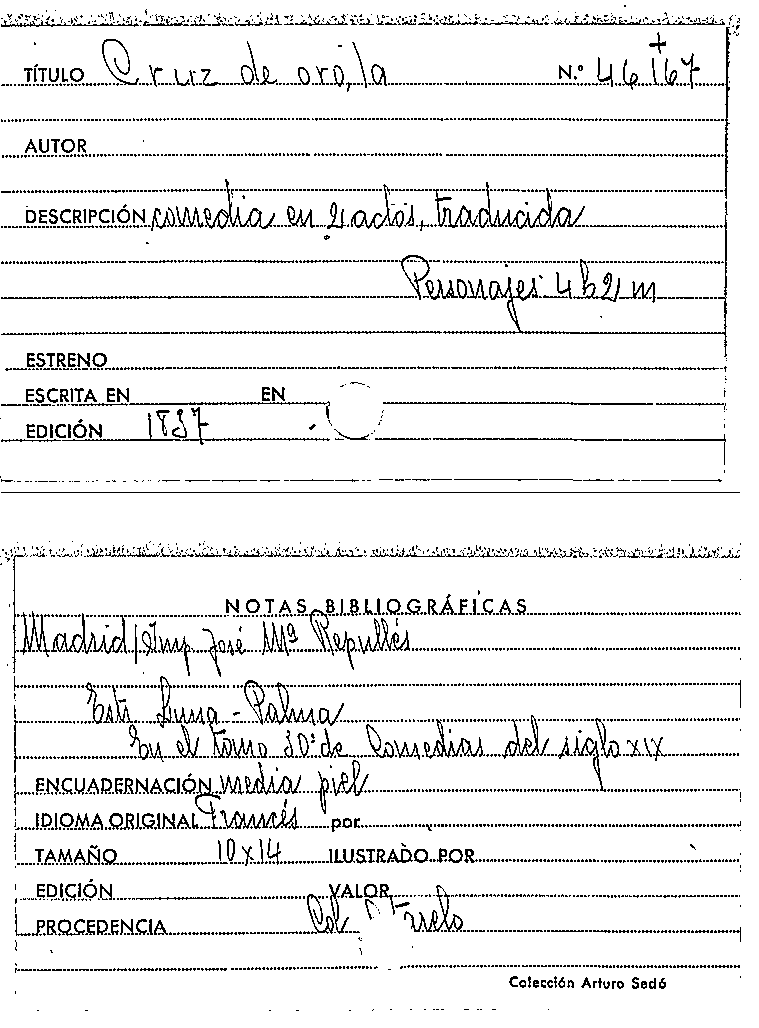 TÍTULO Cruz de oro, la N.º 46167
AUTOR
DESCRIPCIÓN comedia en 2 actos, traducida
Personajes: 4 h 2 m
ESTRENO
ESCRITA EN EN
EDICIÓN 1837
NOTAS BIBLIOGRÁFICAS
Madrid/Imp José Mª Repullés
Luna - Palma
En el tomo de Comedias del siglo XIX
ENCUADERNACIÓN media piel
IDIOMA ORIGINAL Francés por
TAMAÑO 10x14 ILUSTRADO POR
EDICIÓN VALOR
PROCEDENCIA Col
Colección Arturo Sedó